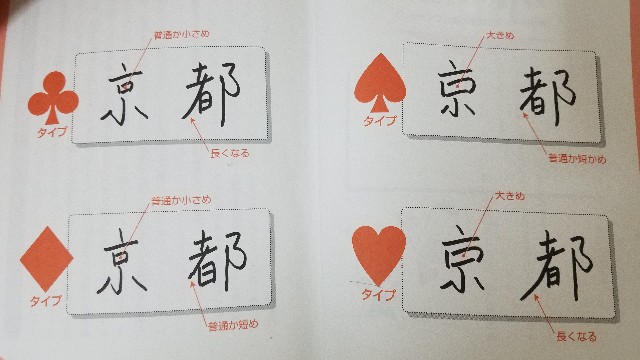 普通か小さめ
京都
タイプ
長くなる
大きめ
京都
タイプ
普通か短かめ
普通か小さめ
京都
タイプ
普通か短め
大きめ
京都
タイプ
長くなる